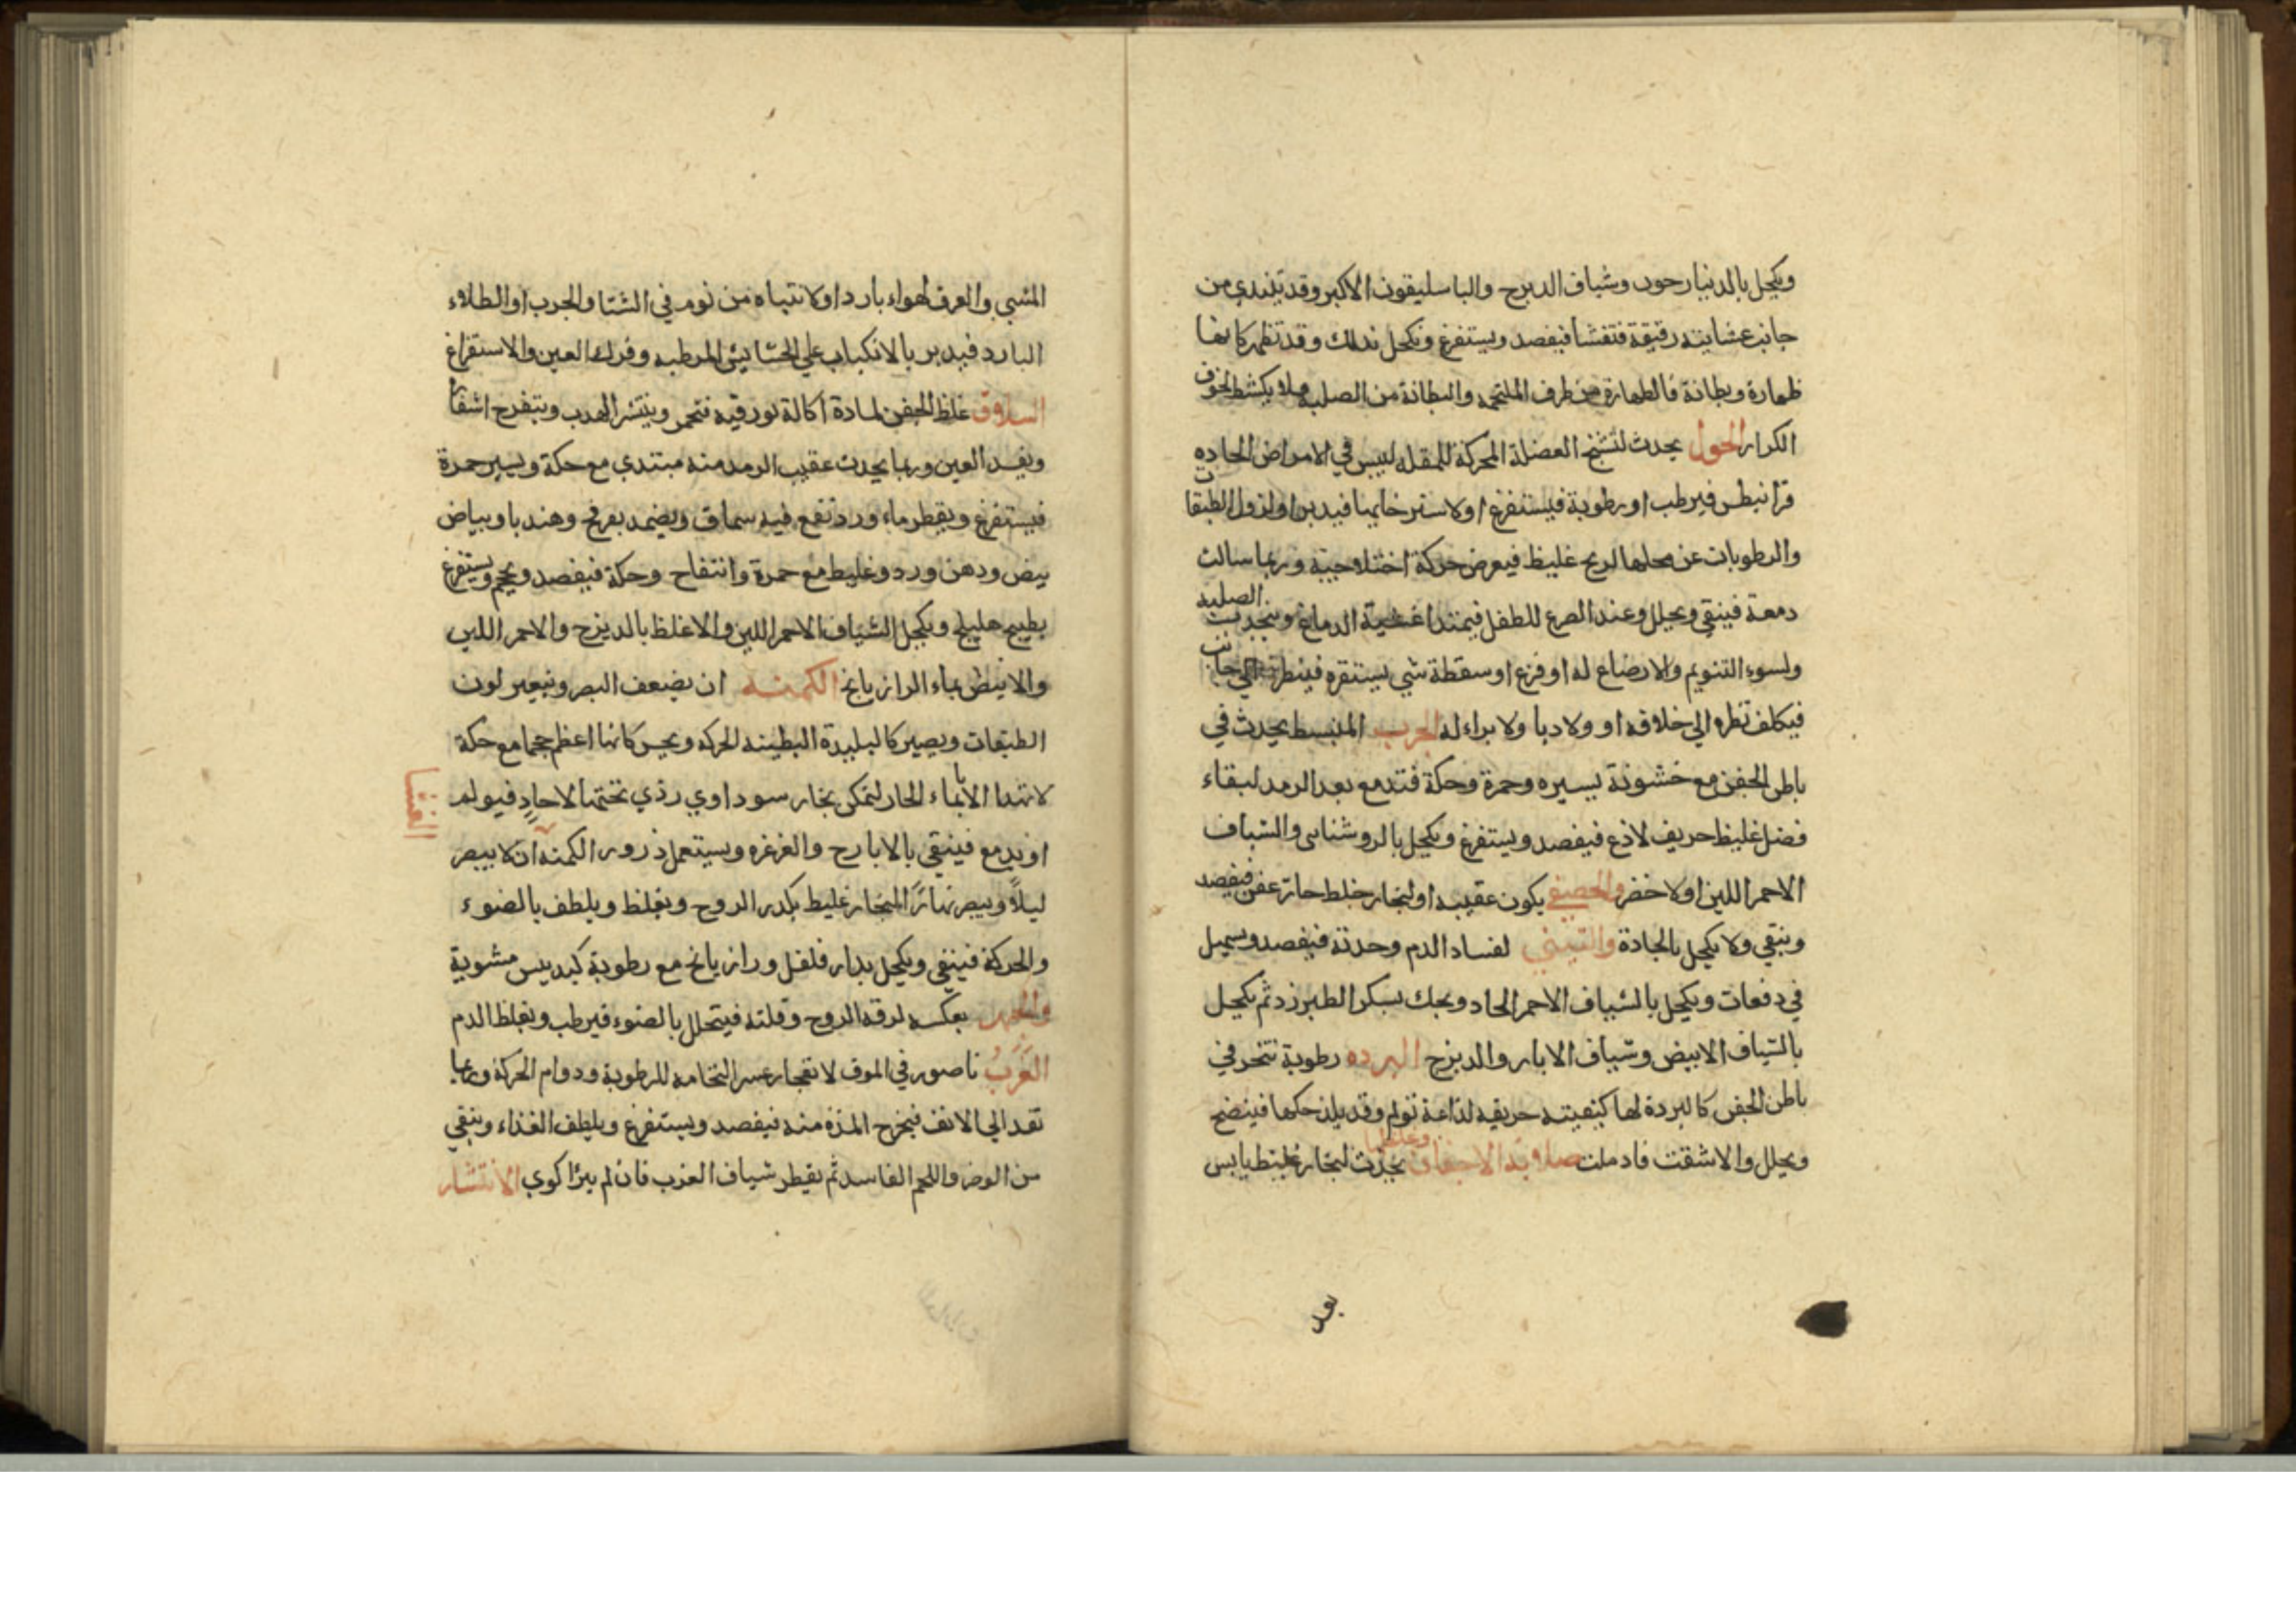 ويكحل بالدينارحون وشياف الديزج والباسليقون الاكبر وقد تبتدي من
جانب عشابته رقيقة فتغشا فيفصد ويستفرغ ويكحل بذلك وقد تظهر كانها
ظهارة وبطانة فالظهارة من طرف الملتحمه والبطانة من الصلبه فلا يكشط لخوف
الكرار الحول يحدث لتشنج العضلة المحركة للمقله ليبس في الامراض الحاده
قرانيطس فيرطب او رطوبة فيستفرغ او لاسترخايها فيدبر او لزول الطبقات
والرطوبات عن محلها لريح غليظ فيعرض حركة اختلاجية وربما سالت
دمعة فينقي ويحلل وعند الصرع للطفل فيمتدا غشية الدماغ وينجذب الصلبه
ولسوء التنويم والارضاع له او فزع او سقطة شي يستنقره فينظر الي جانب
فيكلف نظره الي خلافه او ولاديا ولا براء له الجرب المنبسط يحدث في
باطن الجفن مع خشونة يسيره وحمرة وحكة فتدمع بعد الرمد لبقاء
فضل غليظ حريف لاذع فيفصد ويستفرغ ويكحل بالروشناى والشياف
الاحمر اللين او لاخضر والحصفي يكون عقيبه او لبخار خلط حار عفن فيفصد
وينقي ولا يكحل بالحادة والتيني لفساد الدم وحدته فيفصد ويسهل
في دفعات ويكحل بالشياف الاحمر الحاد ويحك بسكر الطبرزد ثم يكحل
بالشياف الابيض وشياف الابار والديزج البرده رطوبة تتحجر في
باطن الجفن كالبردة لها كيفيته حريفه لذاعة تولم وقد يلذ حكها فينضج
ويحلل والا شقت فادملت صلابة الاجفان وغلظها يحدث لبخار غليظ يابس
بعد
المشي والعرق لهواء بارد او لانتباه من نوم في الشتا والجرب او الطلاء
البارد فيدبر بالانكباب علي الحشايش المرطبه وفرك العين والاستقراغ
السلاق غلظ الجفن لمادة اكالة بورقيه فتحمر وينتشر الهدب ويتقرح اشفار
ويفسد العين وربما يحدث عقيب الرمد منه مبتدي مع حكة ويسير حمرة
فيستفرغ ويقطر ماء ورد نقع فيه سماق ويضمد بفرفخ وهندبا وبياض
بيض ودهن ورد وغليظ مع حمرة وانتفاخ وحكة فيفصد ويحجم ويستفرغ
بطبيخ هليلج ويكحل الشياف الاحمر اللين والاغلظ بالديزج والاحمر اللين
والابيض بماء الرازيانج الكمنه ان يضعف البصر ويتغير لون
الطبقات ويصير كالبليدة البطينه الحركه ويحس كانها اعظم حجما مع حكة
لا تهدا الا بماء الحار لتمكن بخار سوداوي ردي تحتها لا حاد فيولم
او يدمع فينقي بالايارج والغرغره ويستعمل ذرور الكمنه ان لا يبصر
العشا
ليلاً ويبصر نهارًا لبخار غليظ يكدر الروح ويغلظ ويلطف بالضوء
والحركة فينقي ويكحل بدار فلفل ورازيانج مع رطوبة كبد تيس مشوية
والجهر بعكسه لرقة الروح وقلته فيتحلل بالضوء فيرطب ويغلظ الدم
الغرب ناصور في الموق لانفجار عسر التحامه للرطوبة ودوام الحركة وربما
نفد الي الانف فيخرج المدة منه فيفصد ويستفرغ ويلطف الغذاء وينقي
من الوضر واللحم الفاسد ثم يقطر شياف الغرب فان لم يبرا كوي الانتشار